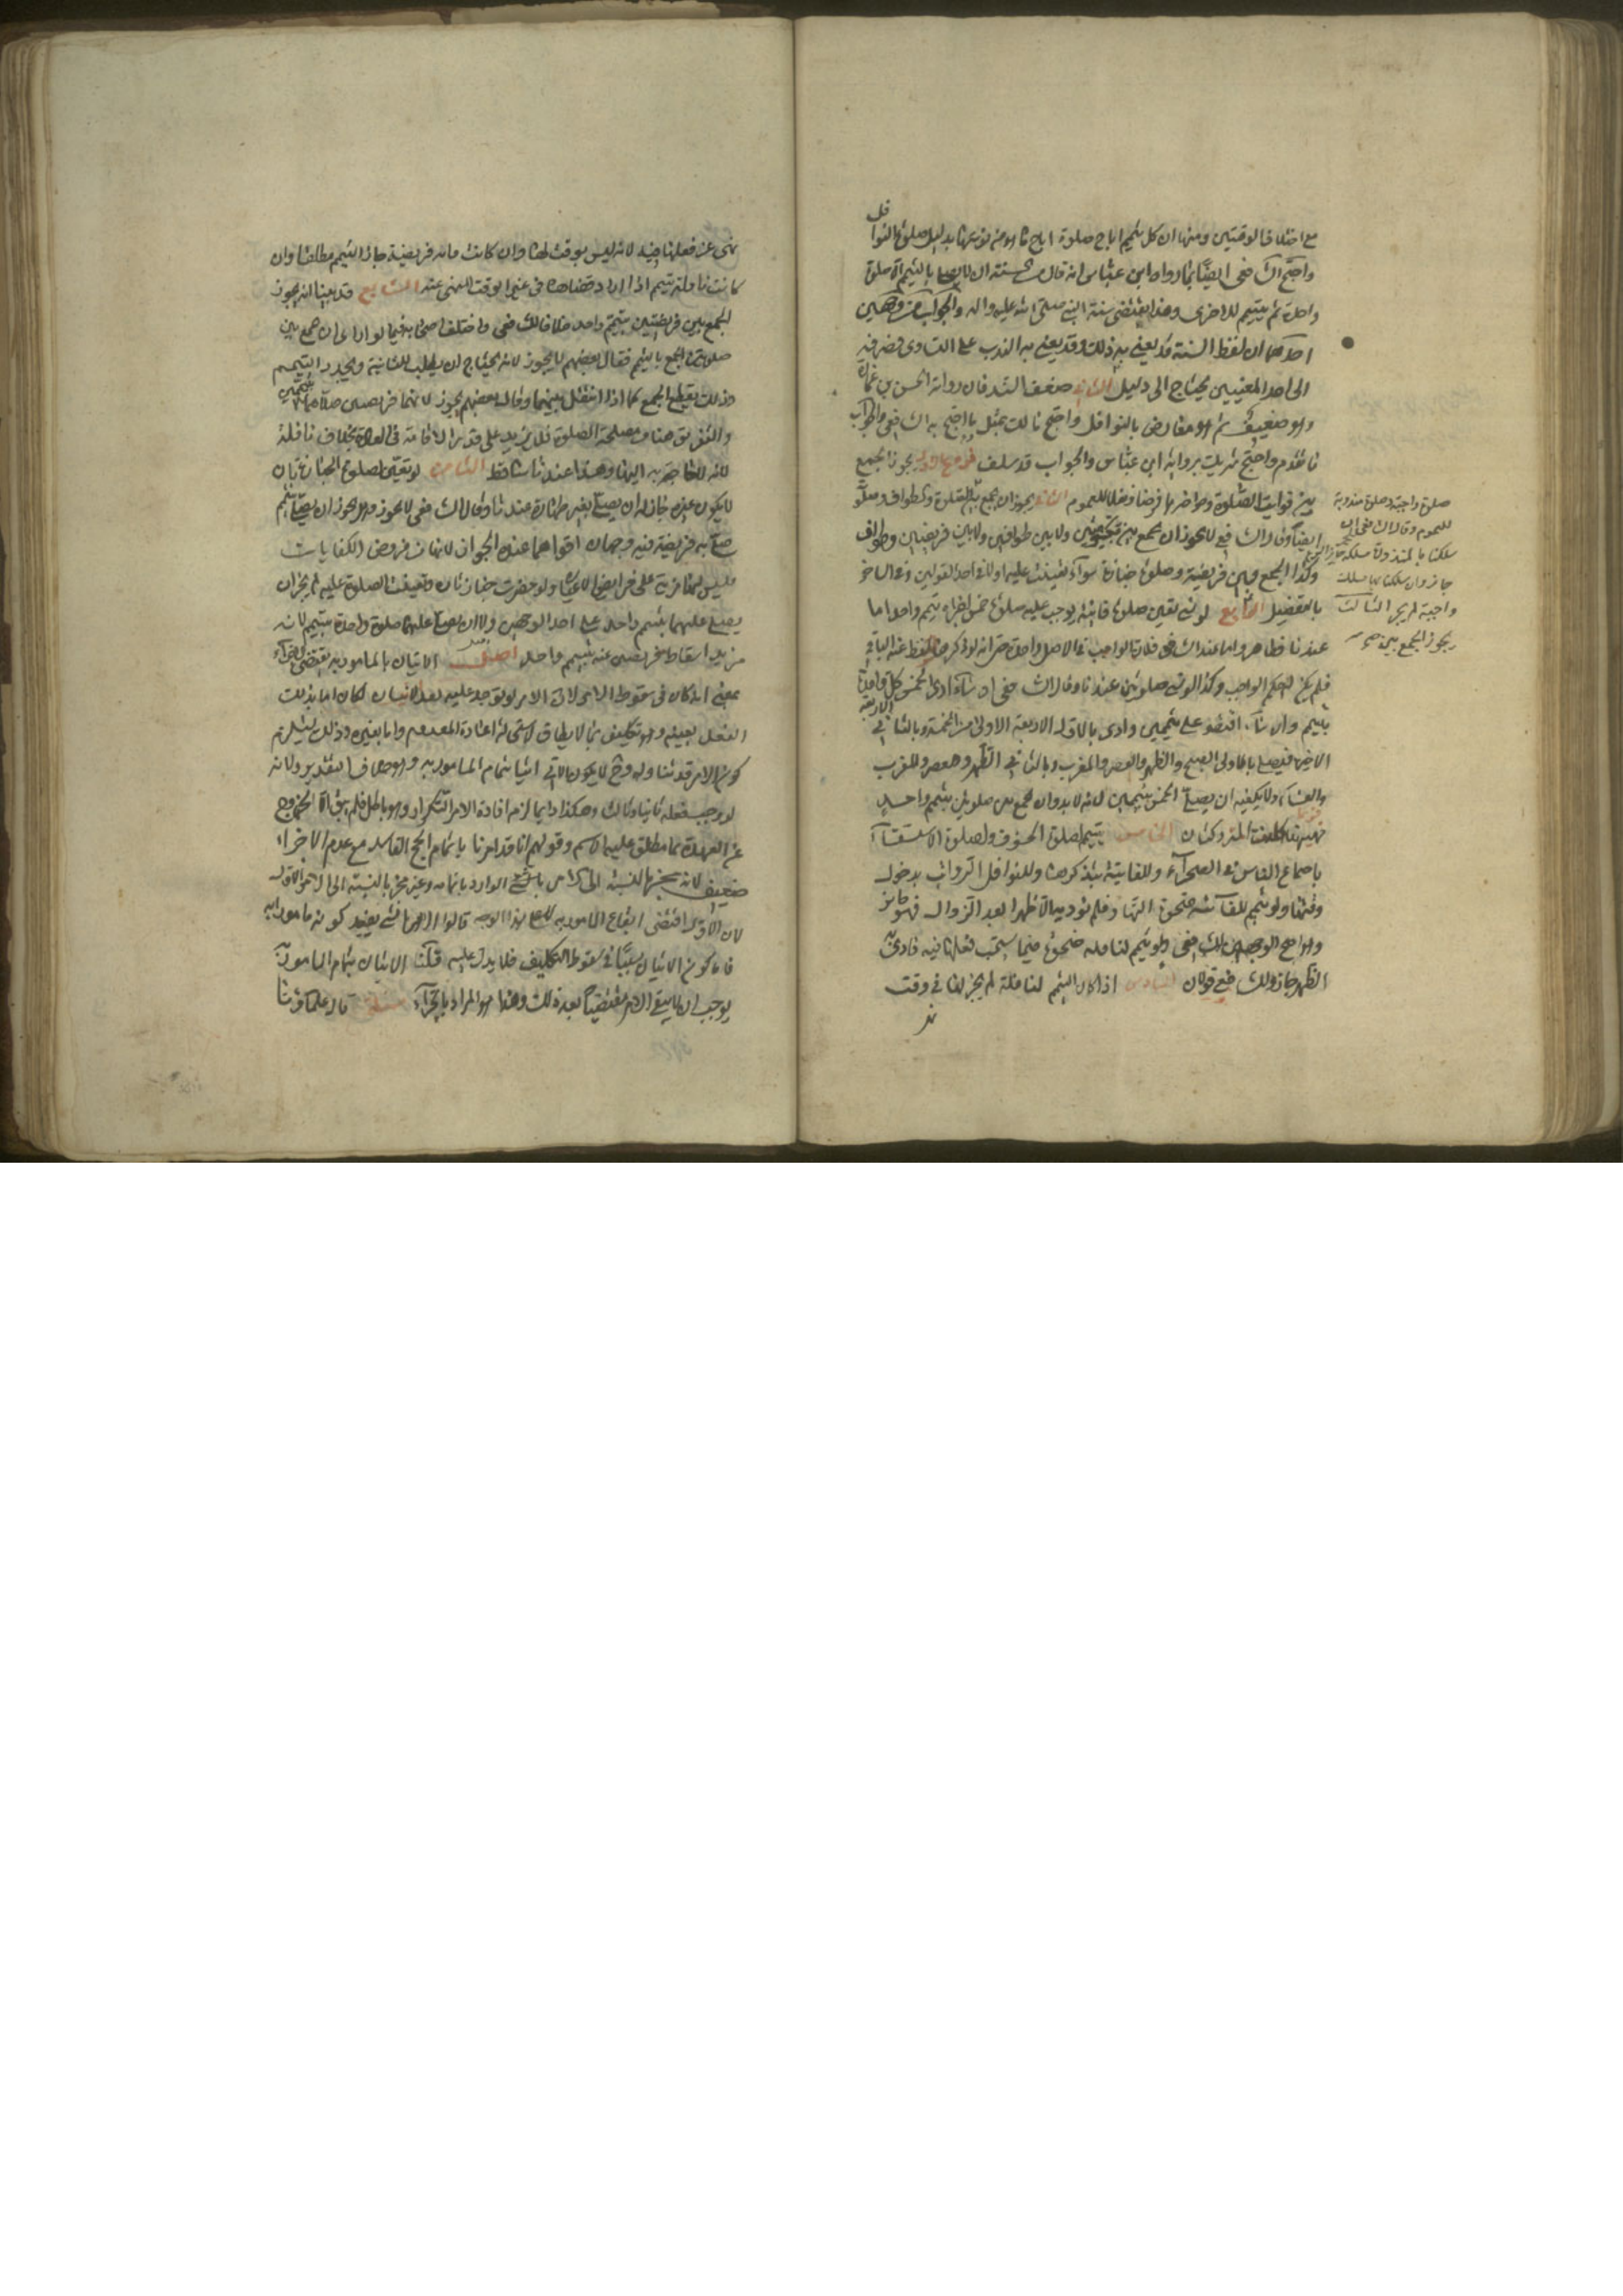 مع اختلاف الوقتين ومنها ان كل تيمم اباح صلوة اباح ما هو من نوعها بدليل صلوة النوافل
واحتج الشافعي ايضا بما رواه ابن عباس انه قال من السنة ان لا يصلي بالتيمم الا صلوة
واحدة ثم يتيمم للاخرى وهذا يقتضي سنة النبي صلى الله عليه واله والجواب من وجهين
احدهما ان لفظ السنة قد يعني به ذلك وقد يعني به الندب على التساوي فصرفه
الى احد المعنيين يحتاج الى دليل الثاني ضعف السند فان رواية الحسن بن عمارة
وهو ضعيف ثم هو معارض بالنوافل واحتج مالك بمثل ما احتج به الشافعي والجواب
ما تقدم واحتج شريك برواية ابن عباس والجواب قد سلف فروع الاول يجوز الجمع
بين فوايت الصلوة وحواضرها فرضا ونفلا للعموم الثاني يجوز ان يجمع بين الصلوة والطواف وصلوة
ايضا وقال الشافعي لا يجوز ان يجمع بين ولا بين طوافين ولا بين فريضتين وطواف
وكذا الجمع بين فريضة وصلوة جنازة سواء تعينت عليه اولا في احد القولين وفي الاخر
بالتفصيل الرابع لو نسي تعيين صلوة فايتة يوجب عليه صلوة خمس اجزاه تيمم واحد اما
عندنا فظاهر واما عند الشافعي فلان الواجب في الاصل واحدة حتى انه لو ذكرها سقط عنه الباقي
فلم يكن لهم حكم الواجب وكذا لو نسي صلوتين عندنا وقال الشافعي ان شاء ادى الخمس كل واحدة
بتيمم وان شاء اقتصر على تيممين وادى بالاول الاربعة الاولى من الخمسة وبالثاني الاربعة
الاخيرة فيصلي بالاولى الصبح والظهر والعصر والمغرب وبالثاني الظهر والعصر والمغرب
والعشاء ولا يكفيه ان يصلي الخمس بتيممين لانه لا بد وان يجمع بين صلوتين بتيمم واحد
المتروكتان الخامس يتيمم لصلوة الخسوف ولصلوة الاستسقاء
باجتماع الناس في الصحراء وللفايتة بتذكرها وللنوافل الرواتب بدخول
وقتها ولو تيمم للفائتة ضحوة النهار فلم يؤد به الا ظهرا بعد الزوال فهو جايز
وهو اصح الوجهين للشافعي ولو تيمم لنافلة ضحوة فيما استحب فعلها فيه فادى به
الظهر جاز وللشافعي قولان السادس اذا كان التيمم لنافلة لم يجز لها في وقت
صلوة واجبة وصلوة مندوبة
للعموم وقال الشافعي
جاز وان سلكنا بها مسلك
واجبة لم يجز الثالث
يجوز الجمع بين
نهي عن فعلها فيه لانه ليس بوقت لها وان كانت فايتة فريضة جاز التيمم مطلقا وان
كانت نافلة تيمم اذا اراد قضاها في غير الوقت المنهي عنه السابع قد بينا انه يجوز
الجمع بين فريضتين بتيمم واحد خلافا للشافعي واختلف اصحابه فيما لو اراد ان يجمع بين
صلوتي الجمع بالتيمم فقال بعضهم لا يجوز لانه يحتاج ان يطلب للثانية ويجدد التيمم
وذلك يقطع الجمع كما اذا انتفل بينهما وقال بعضهم يجوز لانهما فريضتين صلاهما بتيممين
والتفريق هنا من مصلحة الصلوة فلا يزيد على قدر الاقامة في العادة بخلاف نافلة
لانه لا حاجة به اليها وهذا عندنا ساقط الثامن لو تعين لصلوة الجنازة بان
لا يكون غيره جاز له ان يصلي بغير طهارة عندنا وقال الشافعي لا يجوز وهل يجوز ان يصلي بتيمم
صلى به فريضة فيه وجهان اقواهما عنده الجواز لانها من فروض الكفايات
فليس لها مزية على فرايض الاعيان ولو حضرت جنازتان وتعينت الصلوة عليه لم يجز ان
يصلي عليهما بتيمم واحد على احد الوجهين ولا ان يصلي عليهما صلوة واحدة بتيمم لانه
يريد اسقاط فرضين عنه بتيمم واحد اصل الاتيان بالمامور به يقتضي الاجزاء
بمعنى انه كاف في سقوط الامر لان الامر لو توجه عليه بعد الاتيان لكان اما بذلك
الفعل بعينه وهو تكليف بما لا يطاق لاستحالة اعادة المعدوم واما بغيره وذلك يستلزم
كون الامر قد تناوله وح لا يكون الاتي اتيا بتمام المامور به وهو خلاف التقدير ولانه
لو وجب فعله ثانيا وثالثا وهكذا دايما لزم افادة الامر التكرار وهو باطل فلم يبق الا الخروج
عن العهدة بما يطلق عليه الاسم وقولهم انا قد امرنا باتمام الحج الفاسد مع عدم الاجزاء
ضعيف لانه مجز بالنسبة الى الامر الوارد باتمامه وغير مجز بالنسبة الى الامر الاول
لان الاول اقتضى ايقاع المامور به لا على هذا الوجه قالوا الامر بالشيء يفيد كونه مامورا به
فاما كون الاتيان سببا في سقوط التكليف فلا يدل عليه قلنا الاتيان بتمام المامور به
يوجب ان لا يبقى الامر مقتضيا بعد ذلك وهذا هو المراد بالاجزاء مسئلة قال علماؤنا